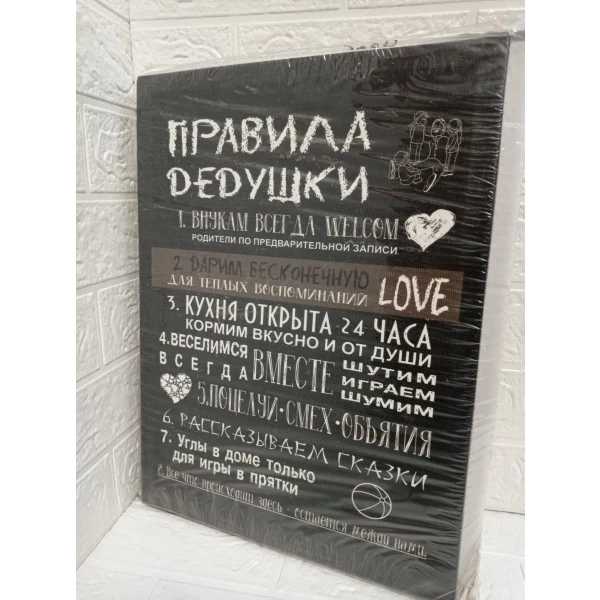 ПРАВИЛА
ДЕДУШКИ
1. ВНУКАМ ВСЕГДА WELCOM
РОДИТЕЛИ ПО ПРЕДВАРИТЕЛЬНОЙ ЗАПИСИ
2. ДАРИМ БЕСКОНЕЧНУЮ
ДЛЯ ТЕПЛЫХ ВОСПОМИНАНИЙ LOVE
3. КУХНЯ ОТКРЫТА 24 ЧАСА
КОРМИМ ВКУСНО И ОТ ДУШИ
4.ВЕСЕЛИМСЯ
ВСЕГДА ВМЕСТЕ
ШУТИМ
ИГРАЕМ
ШУМИМ
5.ПОЦЕЛУИ·СМЕХ·ОБЪЯТИЯ
6. РАССКАЗЫВАЕМ СКАЗКИ
7. Углы в доме только
для игры в прятки
8.Все что происходит здесь - остается между нами.